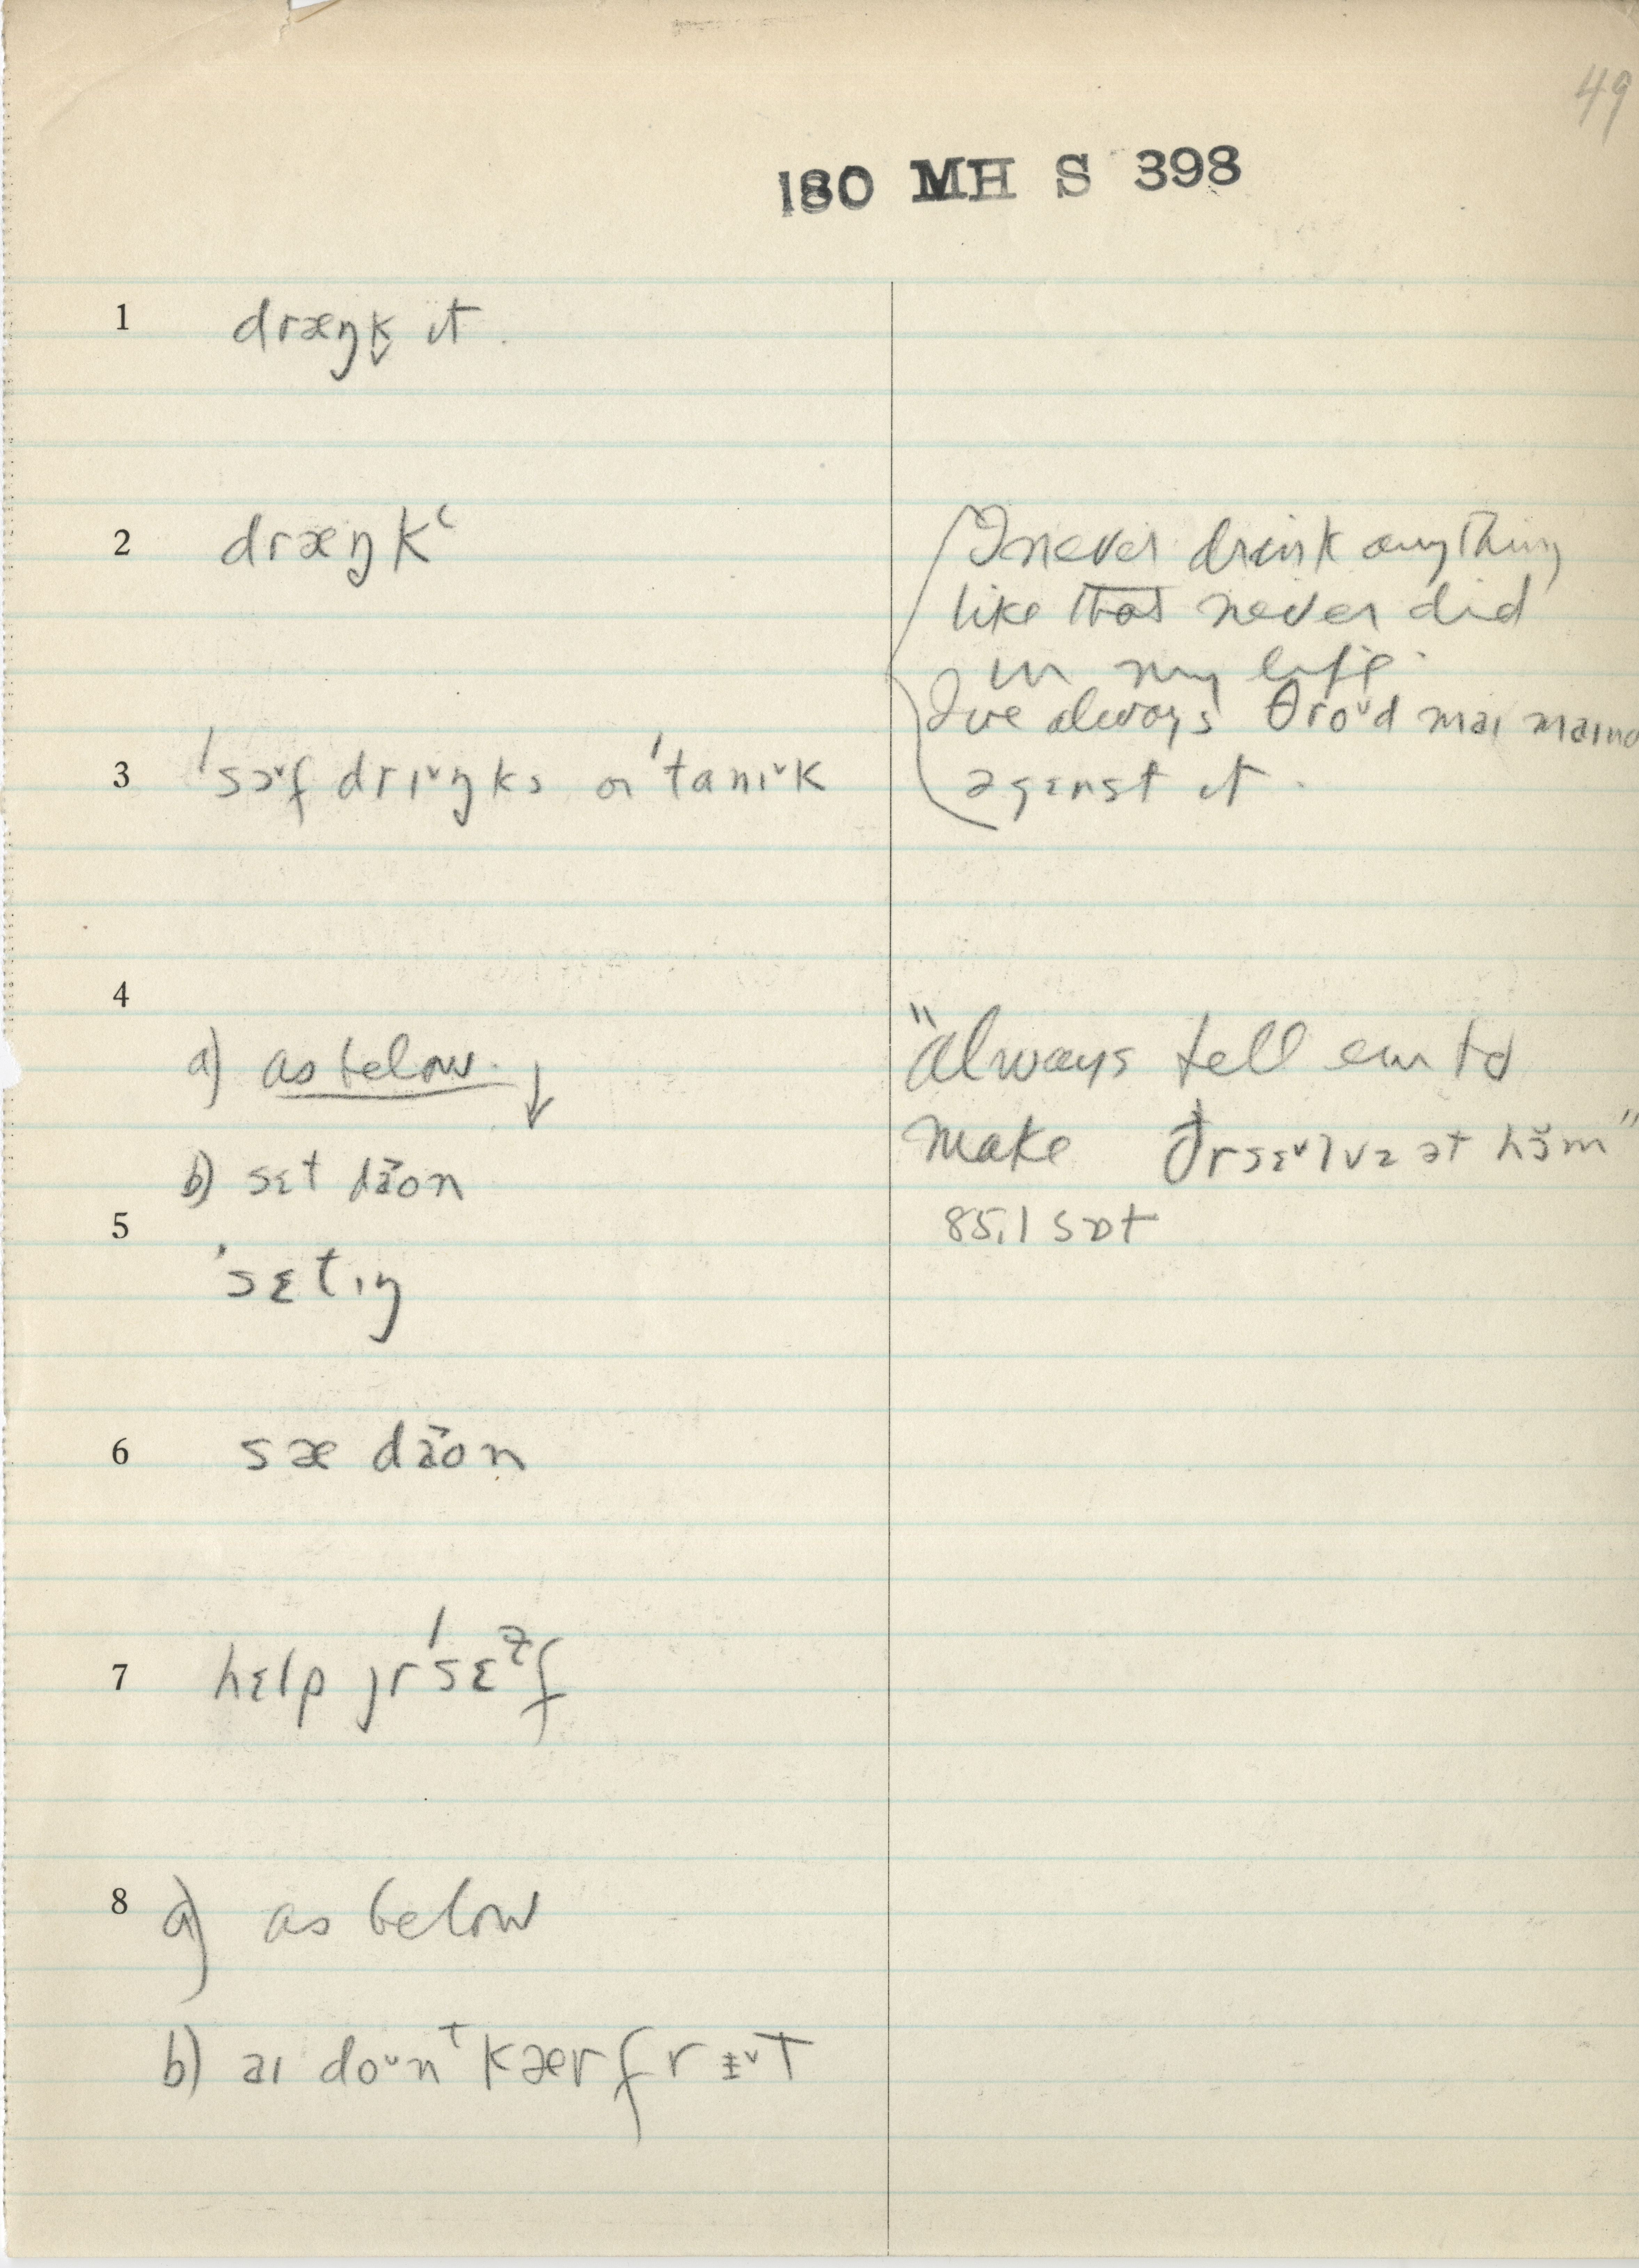 49
180 MH S 398
1 dræŋk̬ ɪt
2 dræŋkʻ
I never drink anything
like that never did
in my life.
I've always θroᵛd maɪ maɪnd
əgɛnst it.
3 ˈsɔᵛf drɪᵛŋks or ˈtanɪᵛk
4
a) as below. ↓
b) sɛt dăon
"always tell em to
make ðrsɛᵛlvz ət hŏm"
85.1 sɒt
5 ˈsɛtɪŋ
6 sæ dăon
7 hɛlp jrˈsɛɫf
8 a) as below
b) aɪ doᵛnᵗ kær fr ɪᵛt